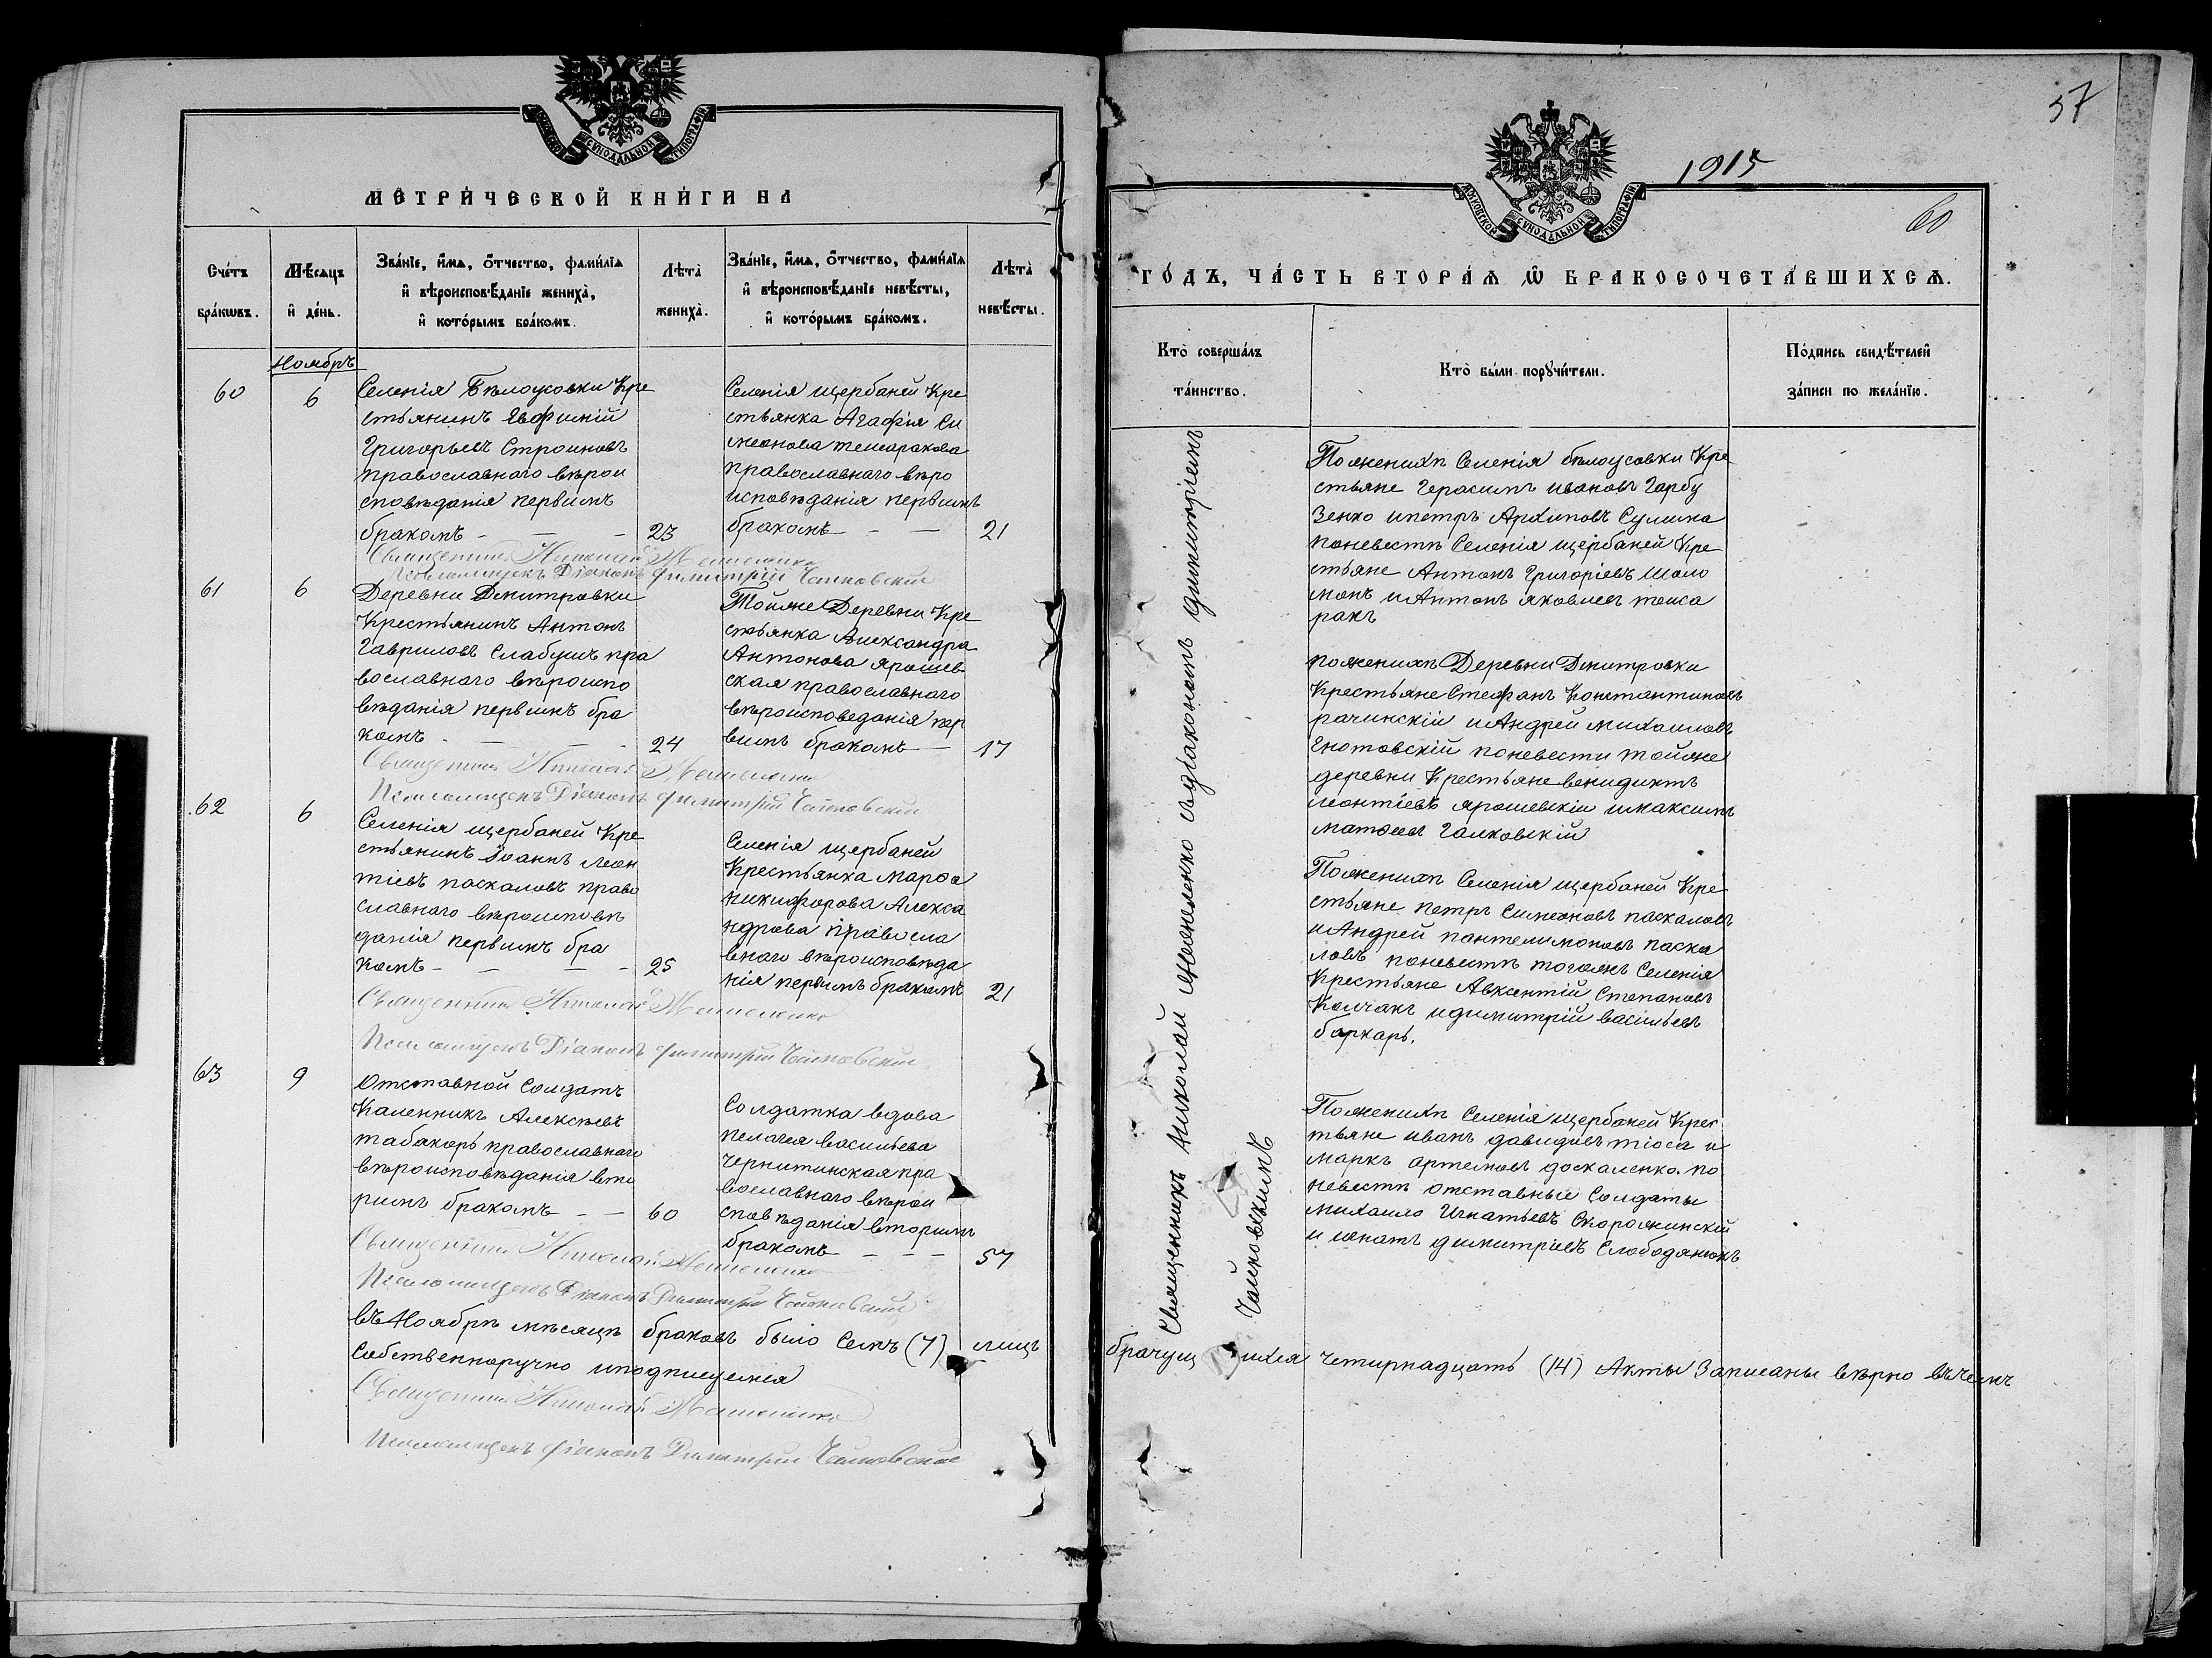 МОСКОВСКОЙ СУНОДАЛЬНОЙ ТИПОГРАФІИ
МЕТРИЧЕСКОЙ КНИГИ НА
Счетъ браковъ.
Мѣсяцъ и день.
Званіе, имя, отчество, фамилія
и вѣроисповѣданіе жениха,
и которымъ бракомъ.
Лѣта
жениха.
Званіе, имя, отчество, фамилія
и вѣроисповѣданіе невѣсты,
и которымъ бракомъ.
Лѣта
невѣсты.
Ноябръ
60
6
Селенія Бѣлоусовки Кре
стьянинъ Евфимій
Григорьевъ Строиновъ
православнаго вѣрои
сповѣданія первимъ
бракомъ - - -
23
Селенія щербаней Кре
стьянка Агафія Си
меонова
православнаго вѣро
исповѣданія первимъ
бракомъ - -
21
Священникъ Николай
Псаломщикъ Діаконъ Димитрій Чайковскій
61
6
Деревни Дмитровки
Крестьянинъ Антонъ
Гавриловъ Слабушъ пра
вославнаго вѣроиспо
вѣданія первимъ бра
комъ - - -
24
Тойже Деревни Кре
стьянка Александра
Антонова Ярошев-
ская православнаго
вѣроисповеданія пер
вимъ бракомъ -
17
Священникъ Николай
Псаломщикъ Діаконъ Димитрій Чайковскій
62
6
Селенія щербаней Кре
стьянинъ Іоаннъ Леон
тіевъ паскаловъ право
славнаго вѣроисповѣ
данія первимъ бра
комъ - - - -
25
Селенія щербаней
Крестьянка Марѳа
никифорова Алекса
ндрова правосла
внаго вѣроисповѣда
нія первимъ бракомъ
21
Священникъ Николай
Псаломщикъ Діаконъ Димитрій Чайковскій
63
9
Отставной Солдатъ
Каленникъ Алексѣевъ
табакоръ православнаго
вѣроисповѣданія вто
римъ бракомъ - -
60
Солдатка вдова
пелагея васильева
Чернитинская пра
вославнаго вѣрои
сповѣданія вторимъ
бракомъ - - -
57
Священникъ Николай
Псаломщикъ Діаконъ Димитрій Чайковскій
въ Ноябрѣ мѣсяцѣ браковъ было Семъ (7) лицъ
Собственноручно и подписуемся
Священникъ Николай
Псаломщикъ Діаконъ Димитрій Чайковскій
57
1915
60
МОСКОВСКОЙ СУНОДАЛЬНОЙ ТИПОГРАФІИ
ГОДЪ, ЧАСТЬ ВТОРАЯ Ѿ БРАКОСОЧЕТАВШИХСЯ.
Кто совершалъ
таинство.
Кто были поручители.
Подпись свидѣтелей
записи по желанію.
Священникъ Николай съ діакономъ Димитріемъ
Чайковскимъ
Пожениху Селенія бѣлоусовки Кре
стьяне Герасимъ ивановъ Гарбу
зенко ипетръ Архиповъ Сулима
поневестѣ Селенія щербаней Кре
стьяне Антонъ Григоріевъ Шоло
монъ и Антонъ яковлевъ
ракъ
пожениху Деревни Дмитровки
Крестьяне Стефанъ Константиновъ
рачинскій и Андрей михаиловъ
Гнотовскій поневести тойже
деревни Крестьяне венидиктъ
леонтіевъ ярошевскій имаксимъ
матѳеевъ Галковскій
Пожениху Селенія щербаней Кре
стьяне петръ Симеоновъ паскаловъ
и Андрей пантелимоновъ паска
ловъ поневестѣ тогожъ Селенія
Крестьяне Авксентій Степановъ
Колчакъ идимитрій васильевъ
баркарь.
Пожениху Селенія щербаней Крес
тьяне иванъ давидовъ тіоса и
маркъ артемовъ доскаленко. по
невестѣ отставные Солдаты
михаило Игнатьевъ Скороминскій
и игнатъ димитріевъ Слободянюкъ
Четирнадцать (14) Акты Записаны вѣрно въ чемъ